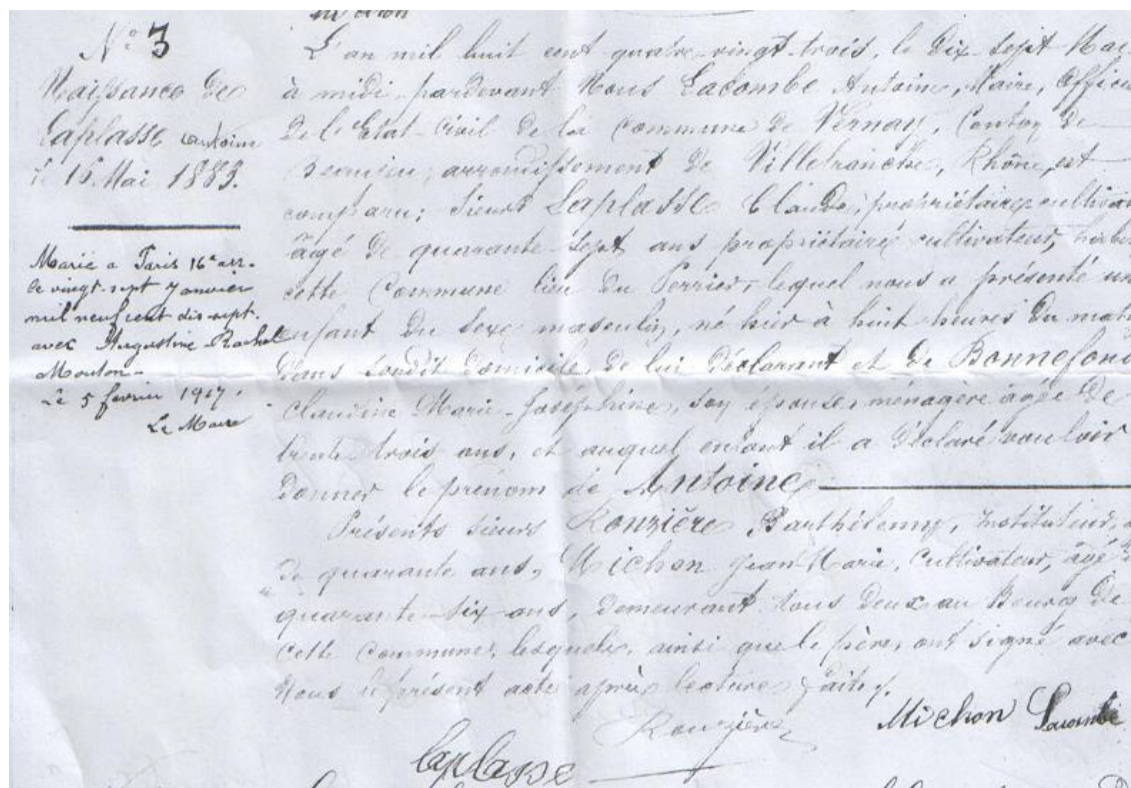 N° 3
Naissance de
Laplasse Antoine
le 16 Mai 1883.
Marié a Paris 16e arr.
le vingt sept Janvier
mil neuf cent dix sept.
avec Augustine Rachel
Mouton
Le 5 février 1917.
Le Maire
L'an mil huit cent quatre-vingt-trois, le Dix sept Mai
à midi, pardevant Nous Lacombe Antoine, Maire, Officier
de l'Etat-Civil de la Commune de Vernay, Canton de
Beaujeu, arrondissement de Villefranche, Rhône, est
comparu; Sieur Laplasse Claude, propriétaire cultivateur
âgé de quarante-sept ans propriétaire cultivateur,
cette Commune lieu du Perrier, lequel nous a présenté un
enfant du sexe masculin, né hier à huit heures du matin
dans sondit domicile, de lui déclarant et de Bonnefond
Claudine Marie-Joséphine, son épouse, ménagère âgée de
trente trois ans, et auquel enfant il a déclaré vouloir
donner le prénom de Antoine
Présents Sieurs Ronzière Barthélemy, Instituteur,
de quarante ans, Michon Jean Marie, Cultivateur, âgé
quarante-six ans, demeurant tous deux au Bourg de
cette Commune, lesquels, ainsi que le père, ont signé avec
Nous le présent acte après lecture faite.
Ronzière
Michon Lacombe
Laplasse